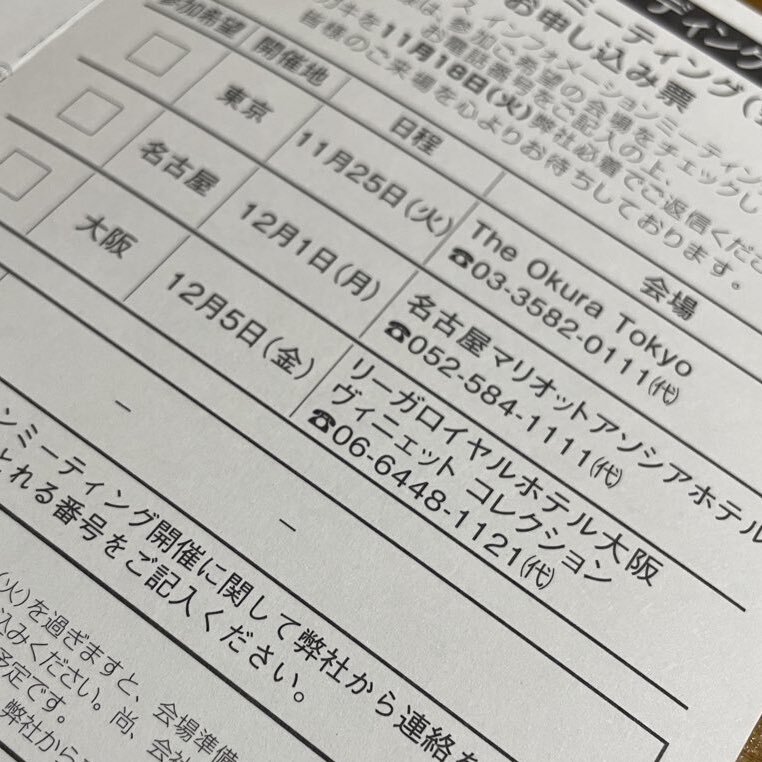 ディング
ミーティング(
お申し込み票
ス インフォメーションミーティング
は、参加ご希望の会場をチェックし
お電話番号をご記入の上、
11月18日(火)弊社必着でご返信くださ
皆様のご来場を心よりお待ちしております。
参加希望 開催地 日程 会場
東京 11月25日(火) The Okura Tokyo
☎03-3582-0111(代)
名古屋 12月1日(月) 名古屋マリオットアソシアホテル
☎052-584-1111(代)
大阪 12月5日(金) リーガロイヤルホテル大阪
ヴィニェット コレクション
☎06-6448-1121(代)
ンミーティング開催に関して弊社から連絡を
とれる番号をご記入ください。
(火)を過ぎますと、会場準備
込みください。尚、会社
予定です。
弊社から